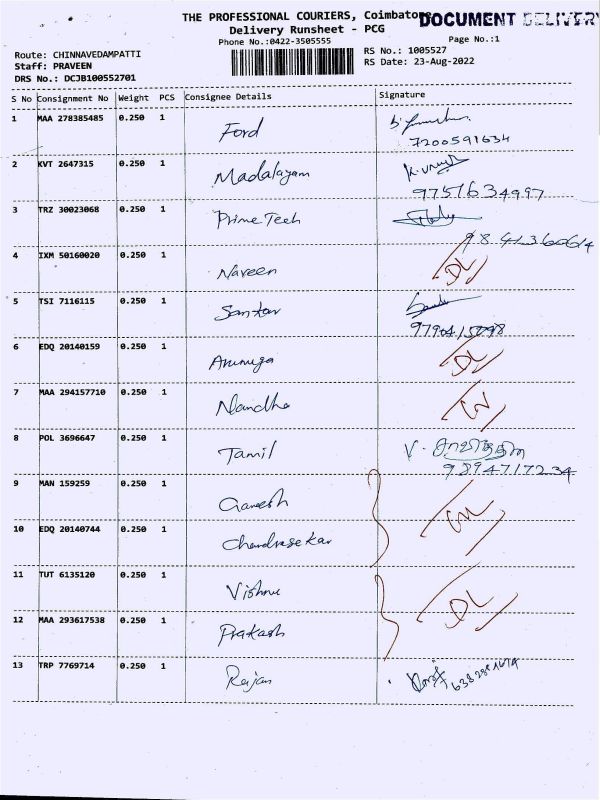 THE PROFESSIONAL COURIERS, Coimbatore
DOCUMENT DELIVERY
Delivery Runsheet - PCG
Phone No.:0422-3505555
Page No.:1
Route: CHINNAVEDAMPATTI
RS No.: 1005527
Staff: PRAVEEN
RS Date: 23-Aug-2022
DRS No.: DCJB100552701
S No Consignment No Weight PCS Consignee Details Signature
1 MAA 278385485 0.250 1 Ford
7200591634
2 KVT 2647315 0.250 1 Madalayam
9751634997
3 TRZ 30023068 0.250 1 Prime Tech
9841360614
4 IXM 50160020 0.250 1 Naveen DL
5 TSI 7116115 0.250 1 Sankar
9790415098
6 EDQ 20140159 0.250 1 Arumuga DL
7 MAA 294157710 0.250 1 Nandha
8 POL 3696647 0.250 1 Tamil V.
9894717234
9 MAN 159259 0.250 1 Ganesh
10 EDQ 20140744 0.250 1 Chandrasekar
11 TUT 6135120 0.250 1 Vishnu DL
12 MAA 293617538 0.250 1 Prakash
13 TRP 7769714 0.250 1 Rajan